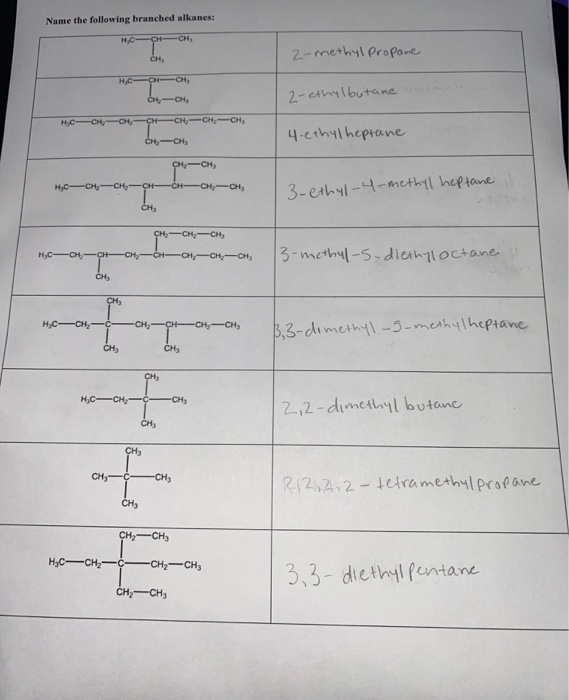 Name the following branched alkanes:
H₃C—CH—CH₃
CH₃
2-methylpropane
H₃C—CH—CH₃
CH₂—CH₃
2-ethylbutane
H₃C—CH₂—CH₂—CH—CH₂—CH₂—CH₃
CH₂—CH₃
4-ethylheptane
CH₂—CH₃
H₃C—CH₂—CH₂—CH—CH—CH₂—CH₃
CH₃
3-ethyl-4-methyl heptane
CH₂—CH₂—CH₃
H₃C—CH₂—CH—CH₂—CH—CH₂—CH₂—CH₃
CH₃
3-methyl-5-diethyloctane
CH₃
H₃C—CH₂—C—CH₂—CH—CH₂—CH₃
CH₃ CH₃
3,3-dimethyl-5-methylheptane
CH₃
H₃C—CH₂—C—CH₃
CH₃
2,2-dimethyl butane
CH₃
CH₃—C—CH₃
CH₃
2,2,2,2-tetramethylpropane
CH₂—CH₃
H₃C—CH₂—C—CH₂—CH₃
CH₂—CH₃
3,3-diethylpentane